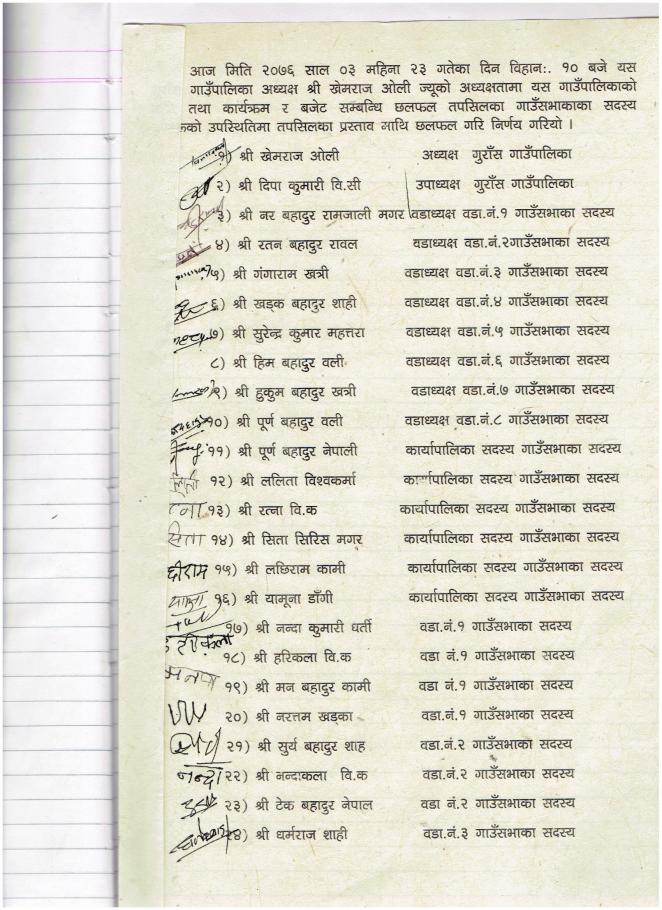 आज मिति २०७६ साल ०३ महिना २३ गतेका दिन विहान:. १० बजे यस
गाउँपालिका अध्यक्ष श्री खेमराज ओली ज्यूको अध्यक्षतामा यस गाउँपालिकाको
तथा कार्यक्रम र बजेट सम्बन्धि छलफल तपसिलका गाउँसभाकाका सदस्य
को उपस्थितिमा तपसिलका प्रस्ताव माथि छलफल गरि निर्णय गरियो ।
१) श्री खेमराज ओली अध्यक्ष गुराँस गाउँपालिका
२) श्री दिपा कुमारी वि.सी उपाध्यक्ष गुराँस गाउँपालिका
३) श्री नर बहादुर रामजाली मगर वडाध्यक्ष वडा.नं.१ गाउँसभाका सदस्य
४) श्री रतन बहादुर रावल वडाध्यक्ष वडा.नं.२गाउँसभाका सदस्य
५) श्री गंगाराम खत्री वडाध्यक्ष वडा.नं.३ गाउँसभाका सदस्य
६) श्री खड्क बहादुर शाही वडाध्यक्ष वडा.नं.४ गाउँसभाका सदस्य
७) श्री सुरेन्द्र कुमार महत्तरा वडाध्यक्ष वडा.नं.५ गाउँसभाका सदस्य
८) श्री हिम बहादुर वली वडाध्यक्ष वडा.नं.६ गाउँसभाका सदस्य
९) श्री हुकुम बहादुर खत्री वडाध्यक्ष वडा.नं.७ गाउँसभाका सदस्य
१०) श्री पूर्ण बहादुर वली वडाध्यक्ष वडा.नं.८ गाउँसभाका सदस्य
११) श्री पूर्ण बहादुर नेपाली कार्यापालिका सदस्य गाउँसभाका सदस्य
१२) श्री ललिता विश्वकर्मा कार्यापालिका सदस्य गाउँसभाका सदस्य
१३) श्री रत्ना वि.क कार्यापालिका सदस्य गाउँसभाका सदस्य
सिता १४) श्री सिता सिरिस मगर कार्यापालिका सदस्य गाउँसभाका सदस्य
१५) श्री लछिराम कामी कार्यापालिका सदस्य गाउँसभाका सदस्य
१६) श्री यामूना डाँगी कार्यापालिका सदस्य गाउँसभाका सदस्य
१७) श्री नन्दा कुमारी धर्ती वडा नं.१ गाउँसभाका सदस्य
१८) श्री हरिकला वि.क वडा नं.१ गाउँसभाका सदस्य
१९) श्री मन बहादुर कामी वडा नं.१ गाउँसभाका सदस्य
२०) श्री नरत्तम खड्का वडा.नं.१ गाउँसभाका सदस्य
२१) श्री सुर्य बहादुर शाह वडा.नं.२ गाउँसभाका सदस्य
नन्दा २२) श्री नन्दाकला वि.क वडा.नं.२ गाउँसभाका सदस्य
२३) श्री टेक बहादुर नेपाल वडा नं.२ गाउँसभाका सदस्य
२४) श्री धर्मराज शाही वडा.नं.३ गाउँसभाका सदस्य